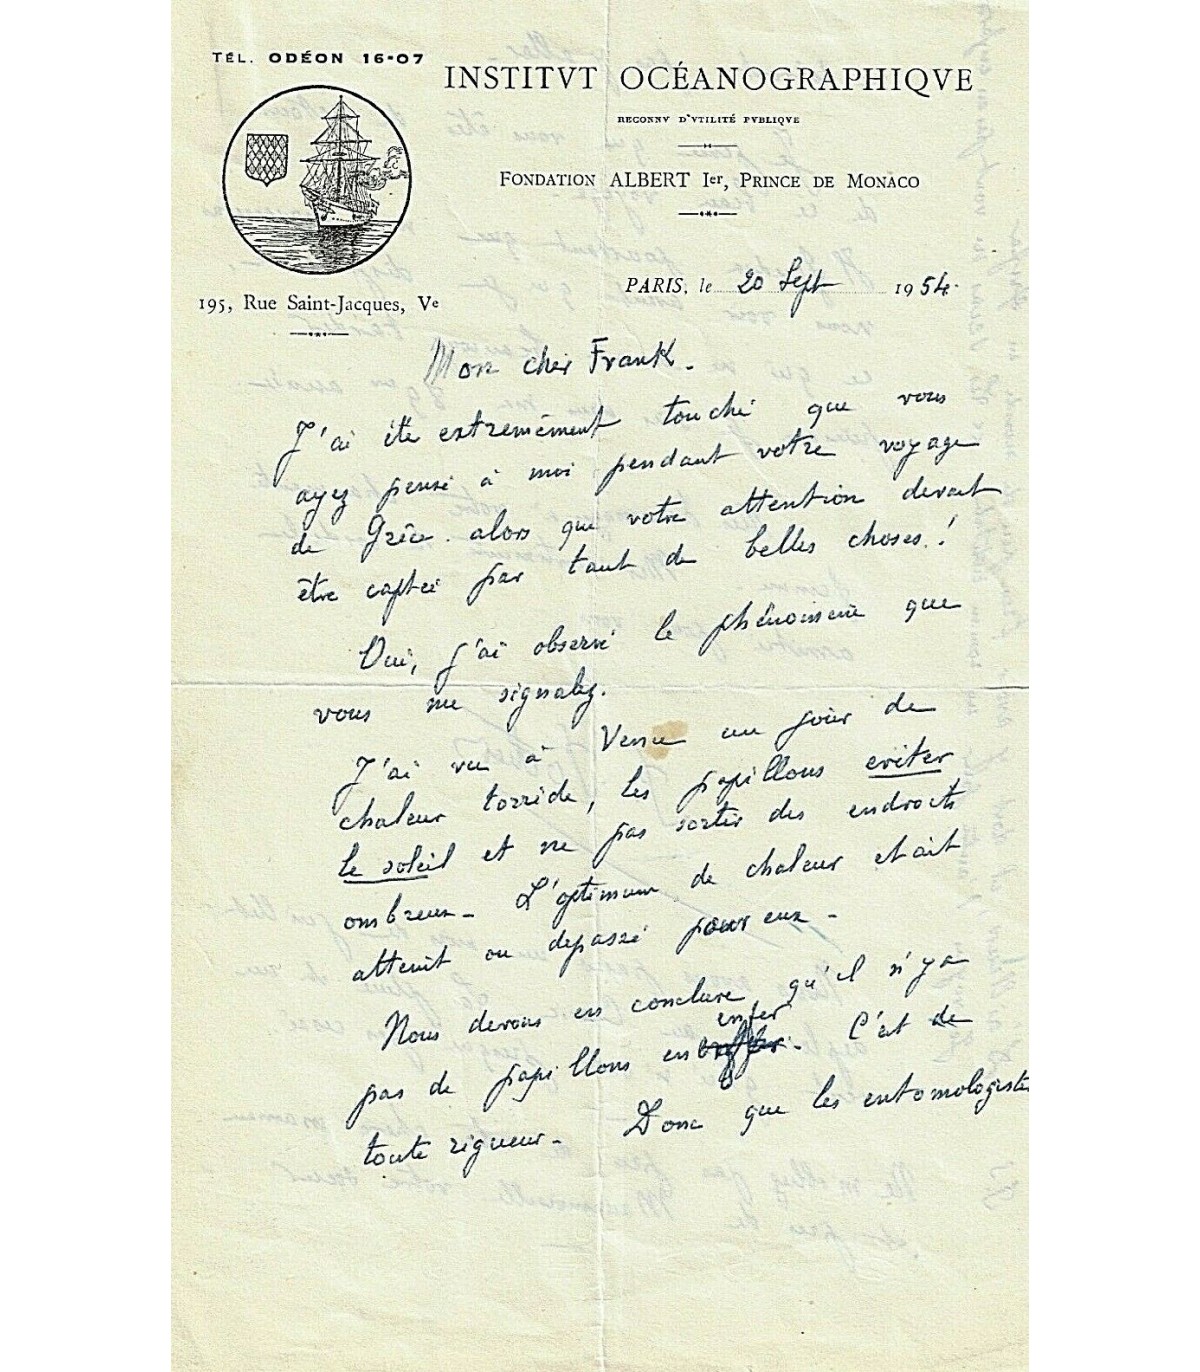 TÉL. ODÉON 16-07
INSTITVT OCÉANOGRAPHIQVE
RECONNV D'VTILITÉ PVBLIQVE
FONDATION ALBERT Ier, PRINCE DE MONACO
195, Rue Saint-Jacques, Ve
PARIS, le 20 Sept 1954.
Mon cher Frank.
J'ai été extremement touché que vous
ayez pensé à moi pendant votre voyage
de Grèce. alors que votre attention devait
être captée par tant de belles choses!
Oui, j'ai observé le phénomène que
vous me signalez.
J'ai vu à un jour de
chaleur torride, les papillons eviter
le soleil et ne pas sortir des endroits
ombreux - L'optimum de chaleur etait
atteint ou depassé pour eux -
Nous devons en conclure qu'il n'y a
enfer
pas de papillons en - C'est de
toute rigueur - Donc que les entomologistes